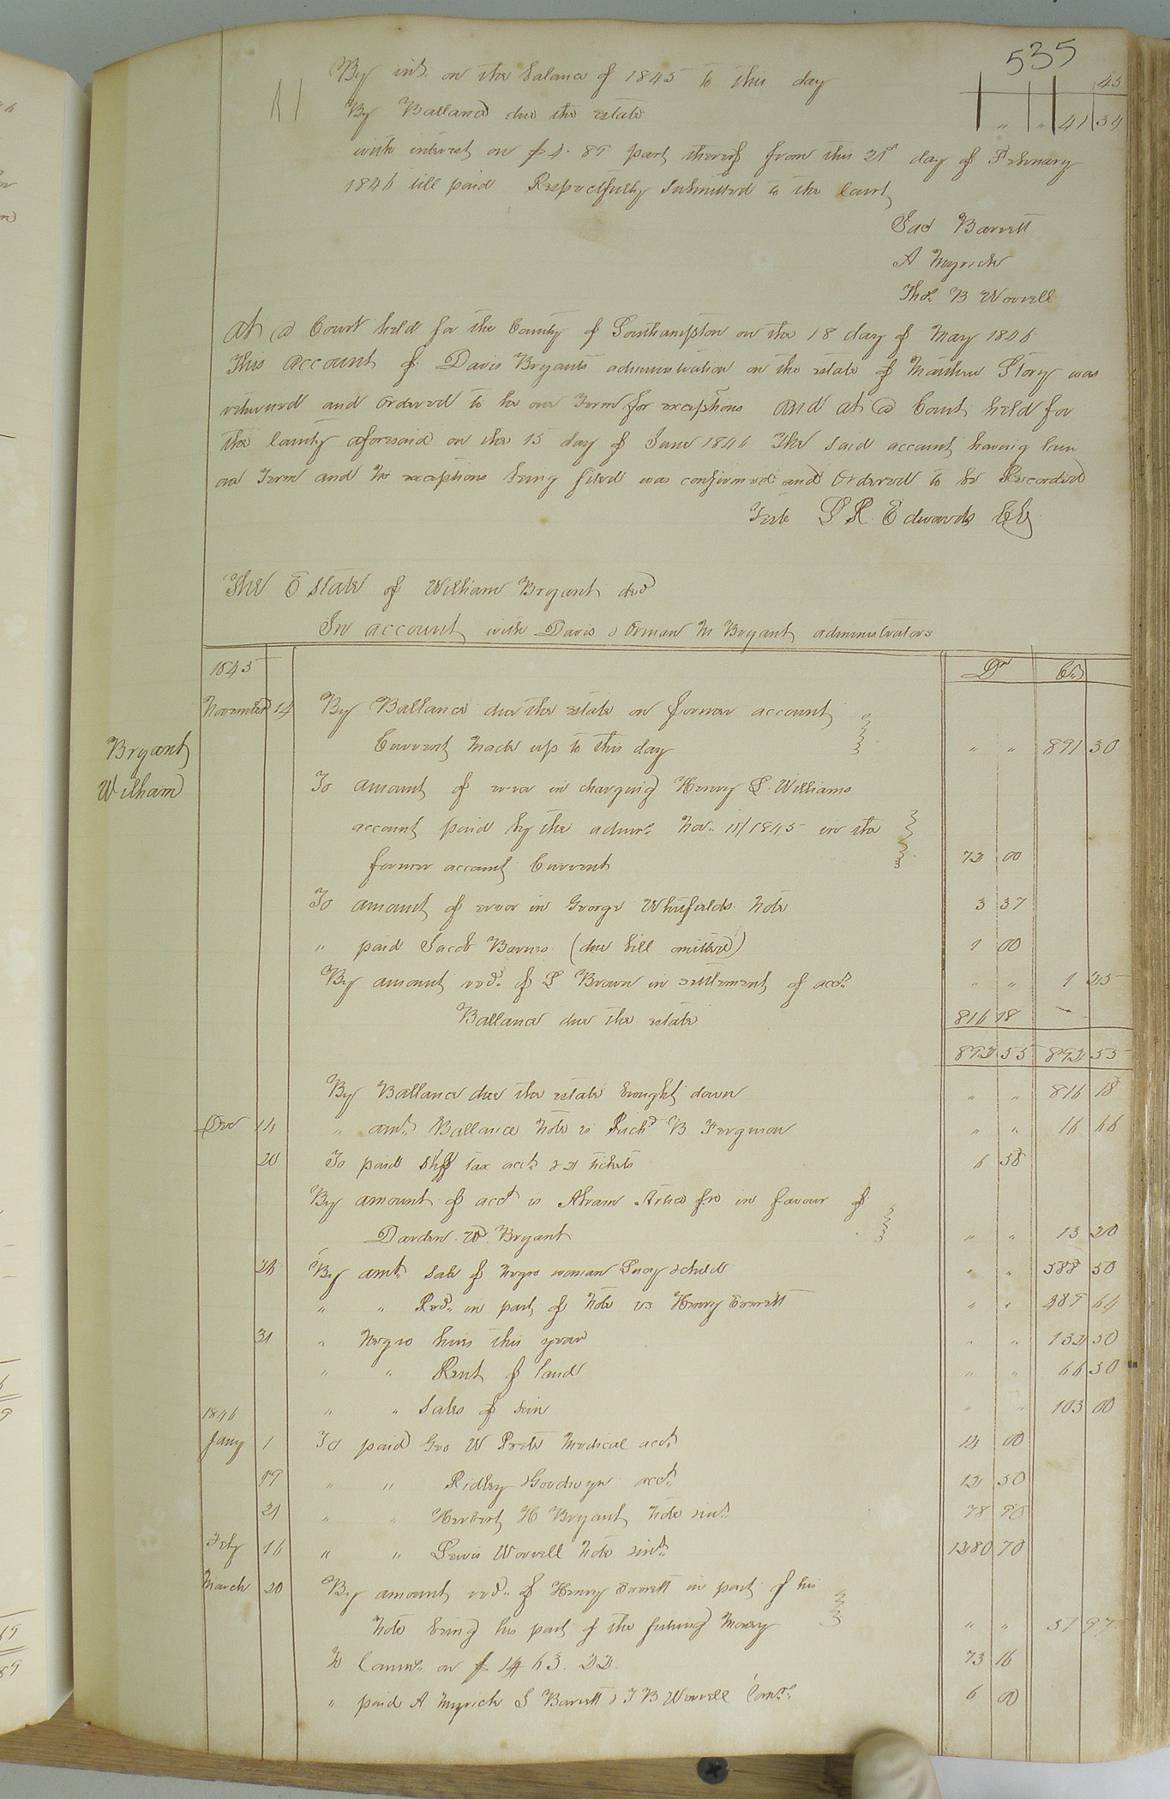 535
By int. on the balance of 1845 to this day 45
By Ballance due the estate " " 41 34
with interest on $4.89 part thereof from this 21st day of February
1846 till paid Respectfully Submitted to the Court
Jac Barrett
A Myrick
Thos B Worrell
At a Court held for the County of Southampton on the 18 day of May 1846
This account of Davis Bryants administration on the estate of Matthew Story was
returned and Ordered to lie one Term for exceptions And at a Court held for
the County aforesaid on the 15 day of June 1846 The said account having lain
one Term and No exceptions being filed was confirmed and Ordered to be Recorded
Teste L R Edwards Clk
The Estate of William Bryant decd
In account with Davis & Orman M Bryant administrators
1845 Dr Cr
November 14 By Ballance due the estate on former account
Current Made up to this day " " 891 30
Bryant
William
To amount of error in charging Henry L. Williams
account paid by the admrs. Nov. 11/1845 in the
former account Current 72 00
To amount of error in George Whitfields Note 3 37
" paid Jacob Barnes (due bill omitted) 1 00
By amount recd. of L Brown in settlement of acct. " " 1 25
Ballance due the estate 816 18
892 55 892 55
By Ballance due the estate brought down " " 816 18
Dec 14 " amt. Ballance Note vs Richd B Ferguson " " 16 66
20 To paid Shff tax acct. & 2 tickets 6 58
By amount of acct vs Abram Artis fn in favour of
Darden & Bryant " " 13 20
24 By amt. sale of Negro woman Lucy & child " " 588 50
" " Recd. in part of Note vs Henry Everett " " 289 64
31 " Negro hires this year " " 132 50
" " Rent of land " " 66 50
" " Sales of " " 103 00
1846
Jany 1 To paid Geo W Medical acct. 14 00
19 " " Ridley & Goodwyn acct. 12 50
21 " " Herbert H Bryant Note & int. 78 90
Feby 16 " " Lewis Worrell Note & int. 1280 70
March 20 By amount recd. of Henry Everett in part of his
Note being his part of the fishing Money " " 51 97
To Comms. on $1463.22 73 16
" paid A Myrick J Barrett & T B Worrell Comrs. 6 00